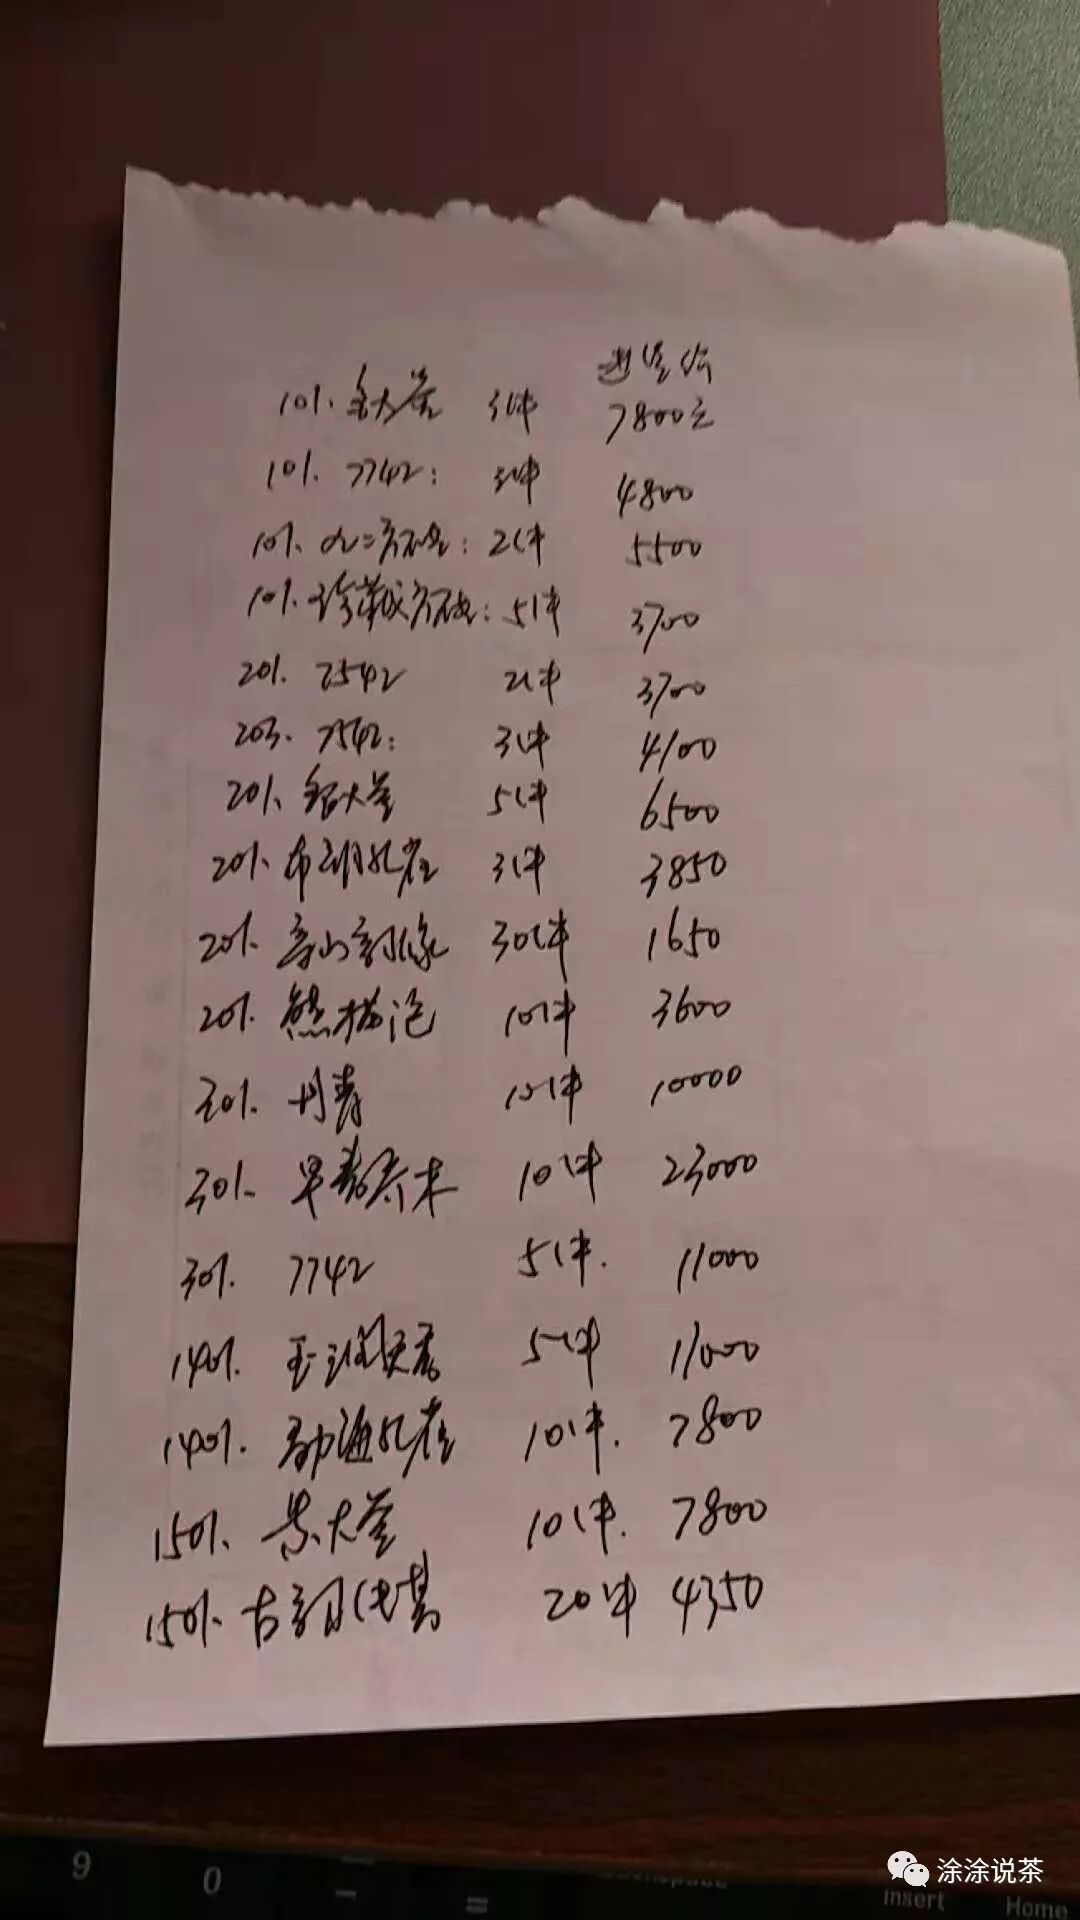 进货价
101. 金大益 3件 7800元
101. 7742: 3件 4800
101. 八二方砖: 2件 5500
101. 珍藏方砖: 5件 3700
201. 7542 2件 3700
203. 7542: 3件 4100
201. 金大益 5件 6500
201. 布朗孔雀 3件 3850
201. 高山韵象 30件 1650
201. 熊猫沱 10件 3600
301. 丹青 10件 10000
301. 早春乔木 10件 23000
301. 7742 5件. 11000
1401. 玉润天香 5件 11000
1401. 勐海孔雀 10件. 7800
1501. 紫大益 10件. 7800
1501. 古韵 20件 4350
9
0
=
Backspace
Insert
Home
涂涂说茶